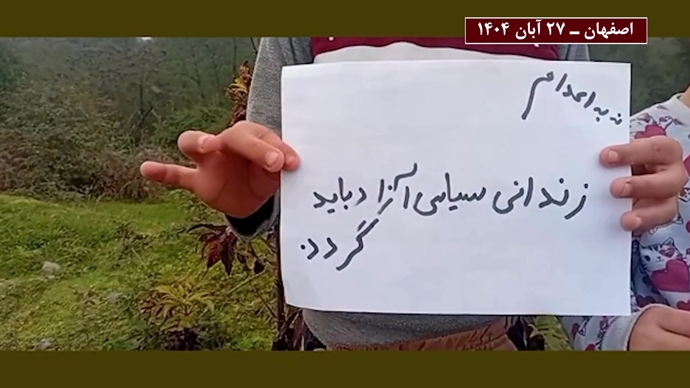 اصفهان ــ ۲۷ آبان ۱۴۰۴
نه به اعدام
زندانی سیاسی آزاد باید
گردد.